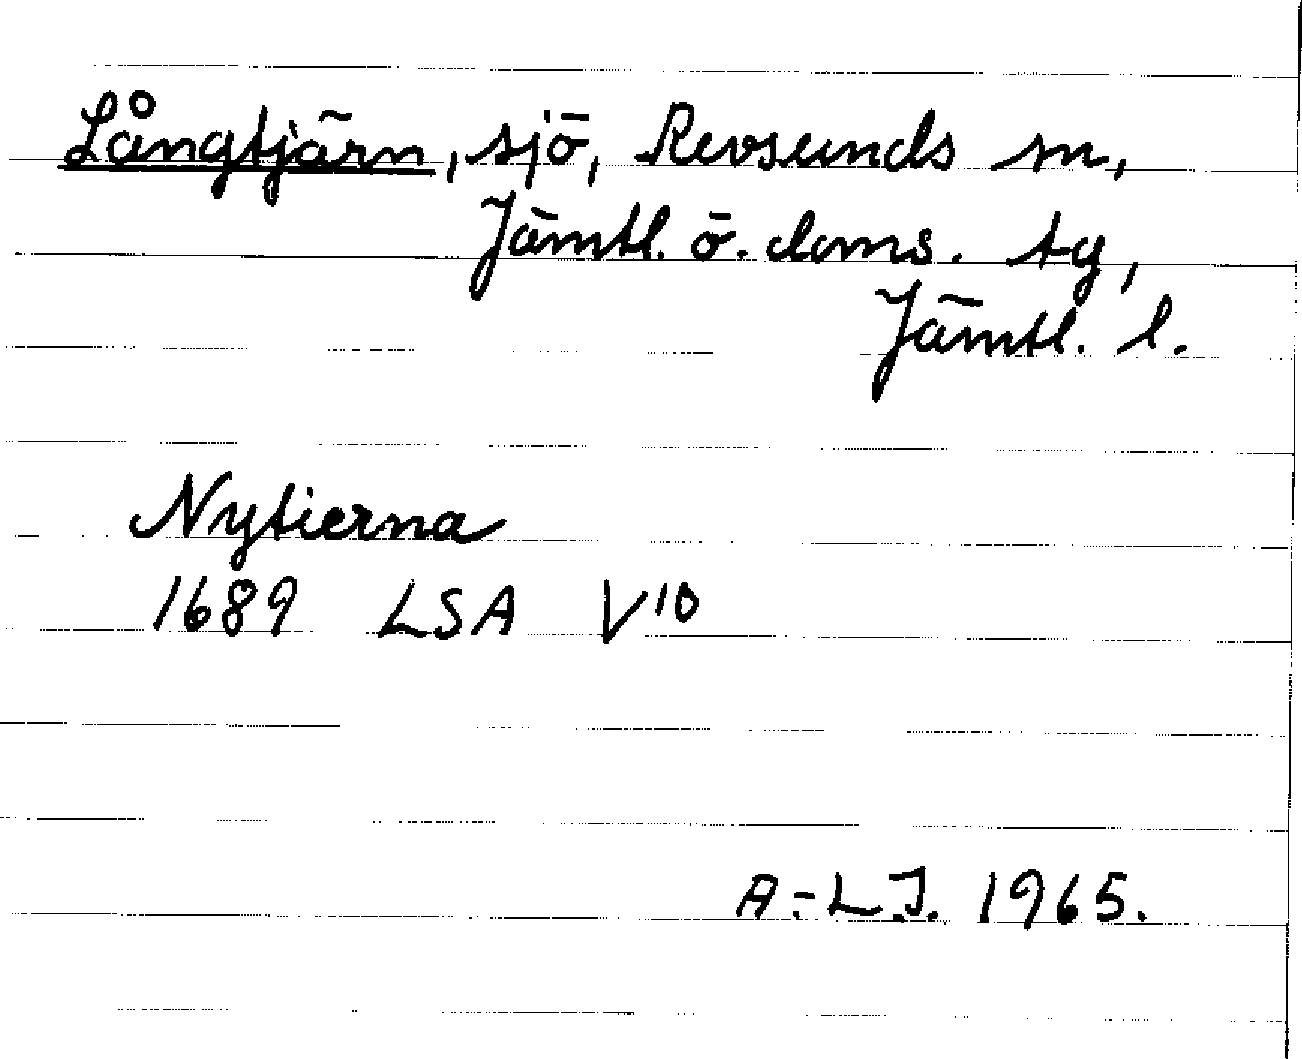 Långtjärn, sjö, Revsunds sn,
Jämtl. ö. doms. tg,
Jämtl. l.
Nytierna
1689 LSA V10
A.-L.J. 1965.